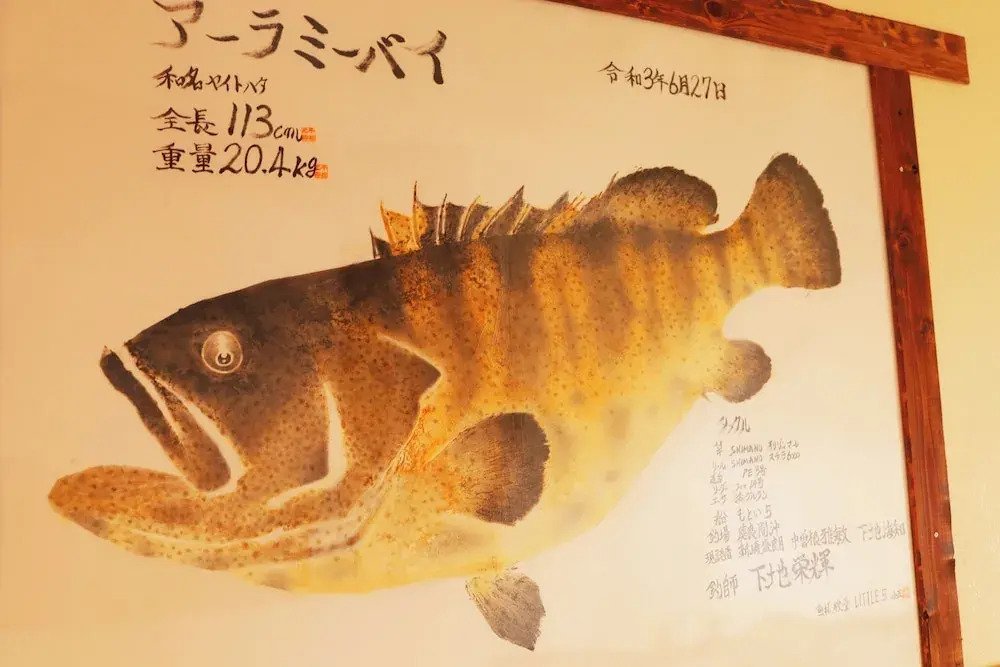 アーラミーバイ
和名ヤイトハタ
全長 113cm
重量 20.4kg
令和3年6月27日
タックル
竿 SHIMANO
リール SHIMANO ステラ
道糸 PE 8号
リーダー
エサ
船 もとい5
釣場 沖
現認者
釣師 下地栄輝
魚拓 LITTLE